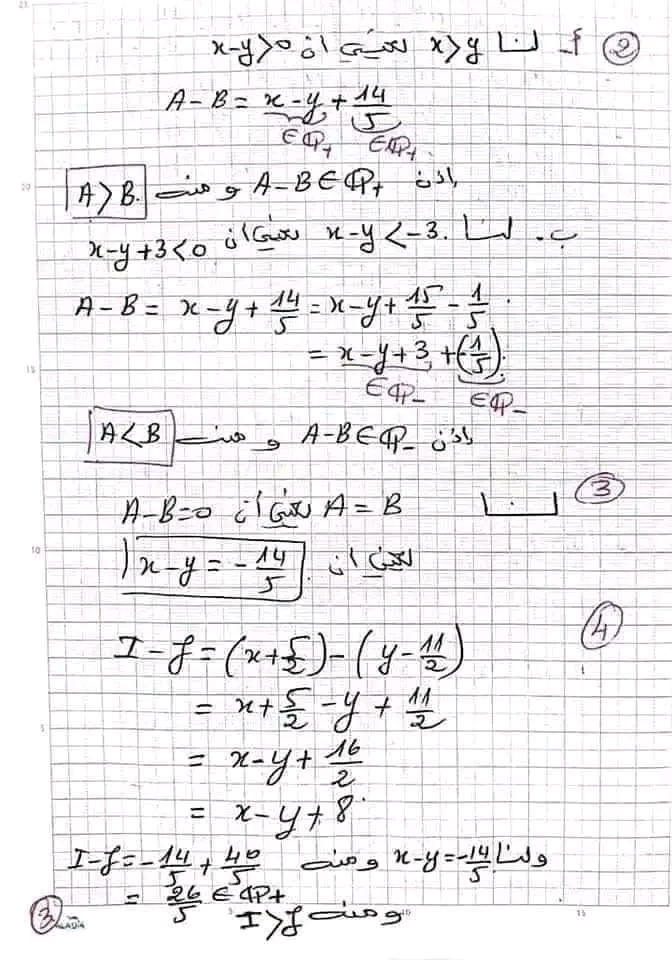 ② أ ـ لنا x>y يعني ان x-y>0
A-B = x-y + 14/5
∈ℚ+ ∈ℚ+
إذن A-B∈ℚ+ ومنه A>B.
ب. لنا x-y<-3. يعني ان x-y+3<0
A-B = x-y+14/5 = x-y+15/5-1/5.
= x-y+3+(-1/5).
∈ℚ- ∈ℚ-
إذن A-B∈ℚ- ومنه A<B
③ لنا A=B يعني ان A-B=0
يعني ان x-y=-14/5
④
I-J=(x+5/2)-(y-11/2)
= x+5/2-y+11/2
= x-y+16/2
= x-y+8
ولنا x-y=-14/5 ومنه I-J=-14/5+40/5
= 26/5 ∈ℚ+
ومنه I>J
③